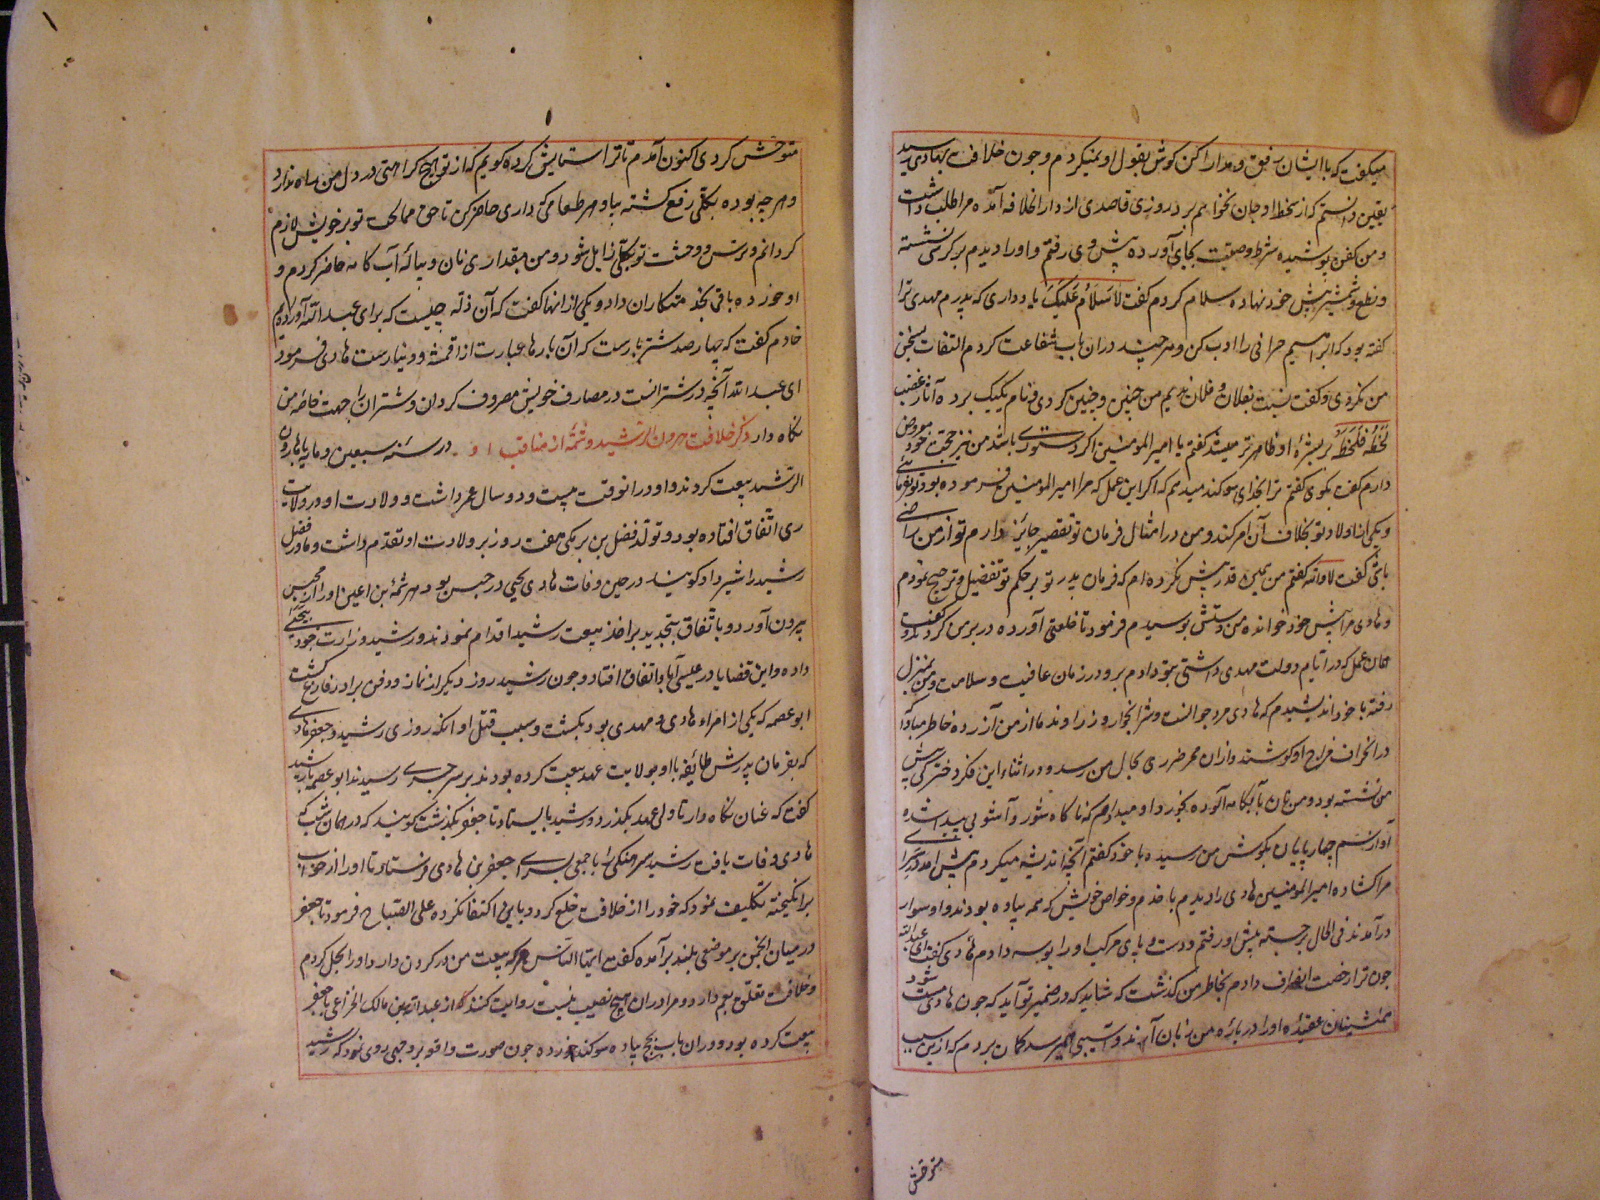 میکفت که با ایشان رفق و مدارا کن کوش بقول او نمیکردم و چون خلافت بهادی رسید
یقین دانستم که از سخط او جان نخواهم برد روزی قاصدی از دار الخلافه آمده مرا طلب داشت
و من کفن پوشیده شرط وصیت بجای آورده پیش وی رفتم و او را دیدم بر کرسی نشسته
و نطع و شمشیر پیش خود نهاده سلام کردم کفت لا سلام علیک یاد داری که پدرم مهدی ترا
کفته بود که ابراهیم حرانی را ادب کن و هر چند در ان باب شفاعت کردم التفات بسخن
من نکردی و کفت نسبت بفلان و فلان ندیم من چنین و چنین کردی و نام یکیک برده آثار غضب
لحظه فلحظه بر بشرهٔ او ظاهرتر میشد کفتم یا امیر المؤمنین اکر دستوری باشد من نیز حجت خود معروض
دارم کفت بکوی کفتم ترا بخدای سوکند میدهم که اکر این عمل که مرا امیر المؤمنین فرموده بود تو بفرمائی
و یکی از اولاد تو بخلاف آن امر کند و من در امتثال فرمان تو تقصیر جایز دارم تو از من راضی
باشی کفت لا والله کفتم من همین قدر پیش نکرده‌ام که فرمان پدر تو بر حکم تو تفضیل و ترجیح نمودم
و هادی مرا پیش خود خوانده من دستش بوسیدم فرمود تا خلعتی آورده در بر من کردند و کفت
همان عمل که در ایام دولت مهدی داشتی بتو دادم برو در زمان عافیت و سلامت و من بمنزل
رفته با خود اندیشیدم که هادی مرد جوانست و شرابخوار و ندماء او از من آزرده خاطر مبادا
در انحراف مزاج او کوشند و ازان ممر ضرری بحال من رسد و در اثناء این فکر دخترکی پیش
من نشسته بود و من نان بآبکامه آلوده بخورد او میدادم که ناکاه شور و آشوبی پیدا شده
آواز سم چهارپایان بکوش من رسیده با خود کفتم آنچه اندیشه میکردم پیش آمد در سرا
مرا کشاده امیر المؤمنین هادی را دیدم با خدم و خواص خویش که همه پیاده بودند و او سوار
درآمدند فی الحال برجسته پیش او رفتم و دست و پای مرکب او را بوسه دادم هادی کفت ای عبدالله
چون ترا رخصت انصراف دادم بخاطر من کذشت که شاید که در ضمیر تو آید که چون هادی مست شود
همنشینان عقیدهٔ او را در بارهٔ من بزیان آرند و آسیبی بمن رسد کمان بردم که ازین سبب
متوحش
متوحش کردی اکنون آمدم تا ترا استمالیش کرده کویم که از تو هیچ کراهتی در دل من راه ندارد
و هر چه بوده بکلی رفع کشته بیا و هر طعامی که داری حاضر کن تا حق ممالحت تو بر خویش لازم
کردانم و ترس و وحشت تو بکلی زایل شود و من مقداری نان و پیالهٔ آب کامه حاضر کردم و
او خورده باقی بخدمتکاران داد و یکی از انها کفت که آن ذله چیست که برای عبد الله آورده‌ام
خادم کفت که چهار صد شتر بارست که آن بارها عبارت از اقمشه و دینارست هادی فرمود
ای عبد الله آنچه در شترانست در مصارف خویش مصروف کردان و شتران را جهت خاطر من
نکاه دار ذکر خلافت هرون الرشید و شمه از مناقب او در سنه سبعین و مایه با هارون
الرشید بیعت کردند و او در انوقت بیست و دو سال عمر داشت و ولادت او در ولایت
ری اتفاق افتاده بود و تولد فضل بن برمکی هفت روز بر ولادت او تقدم داشت و مادر فضل
رشید را شیر داد کویند در حین وفات هادی یحیی در حبس بود هرثمه بن اعین او را از محبس
بیرون آورد و باتفاق بتجدید بر اخذ بیعت رشید اقدام نمودند و رشید وزارت خود بیحیی
داده و این قضایا در عیسی آباد اتفاق افتاد و چون رشید روز دیکر از نماز و دفن برادر فارغ کشت
ابو عصمه که یکی از امراء هادی و مهدی بود بکشت و سبب قتل او آنکه روزی رشید و جعفر هادی
که بفرمان پدرش طائفه با او بولایت عهد بیعت کرده بودند بر سر جسری رسیدند ابو عصمه با رشید
کفت که عنان نکاه دار تا ولی عهد بکذرد و رشید بایستاد تا جعفر بکذشت کویند که در همان شب که
هادی وفات یافت رشید سرهنکی را با جمعی بسرای جعفر بن هادی فرستاد تا او را از خواب
برانکیخته تکلیف نمود که خود را از خلافت خلع کردد باین اکتفا نکرده علی الصباح فرمود تا جعفر
در میان انجمن بر موضعی بلند برآمده کفت ایها الناس هر که بیعت من در کردن دارد او را بحل کردم
و خلافت تعلق بعم دارد و مرا در ان هیچ نصیب نیست روایت کنند که از عبد الله بن مالک الخزاعی با جعفر
بیعت کرده بود و در ان باب بحج پیاده سوکند خورده چون صورت واقع بر وجهی روی نمود که رشید